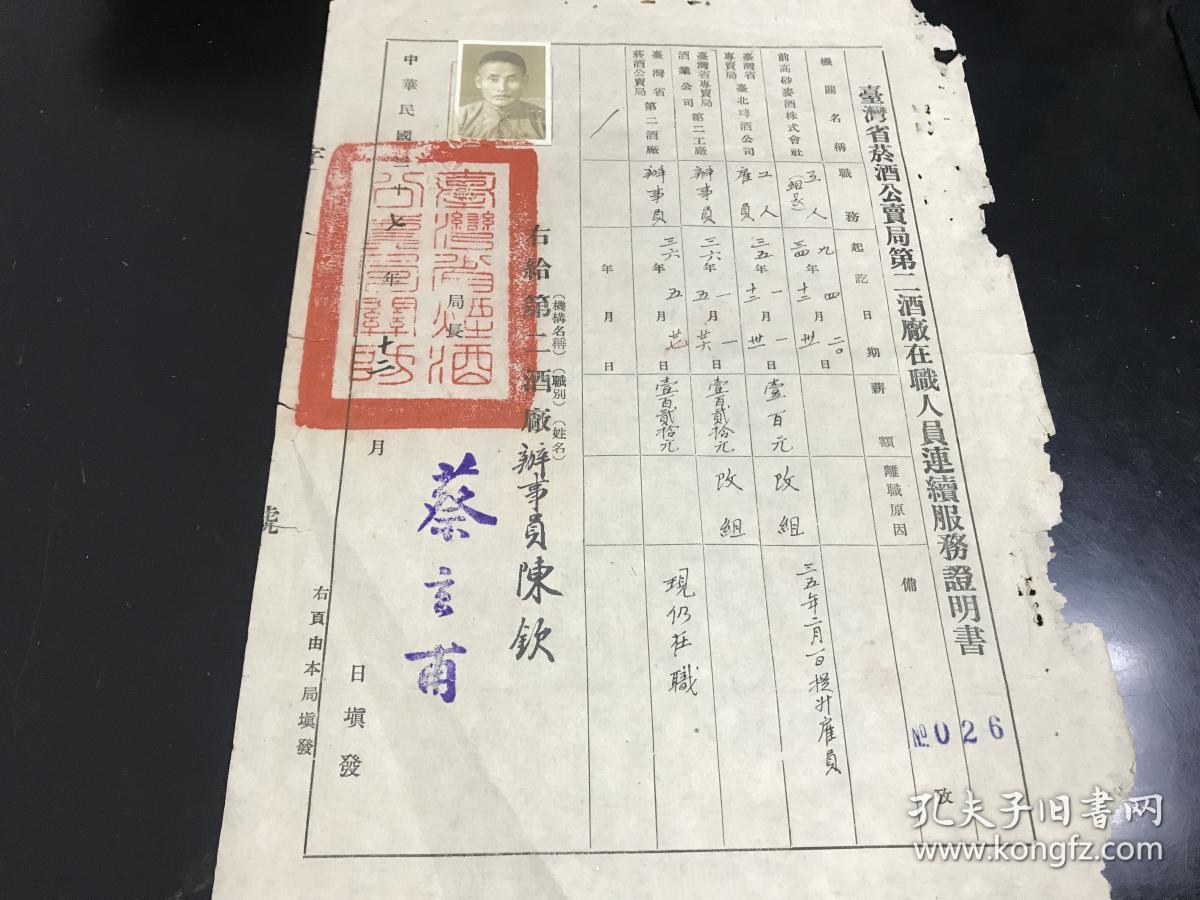 臺灣省菸酒公賣局第二酒廠在職人員連續服務證明書
№026
機關名稱 職務 起訖日期 薪額 離職原因 備攷
前高砂麥酒株式會社 工人(組長) 九年四月二〇日
三四年十二月卅一日
臺灣省專賣局臺北啤酒公司 工人雇員 三五年一月一日
十二月卅一日 壹百元 改組 三五年二月一日提升雇員
臺灣省專賣局酒業公司第二工廠 辦事員 三六年一月一日
五月廿六日 壹百貳拾元 改組
臺灣省菸酒公賣局第二酒廠 辦事員 三六年五月廿七日 壹百貳拾元 現仍在職
年月日
右給第二酒廠辦事員陳欽
(機構名稱)(職別)(姓名)
局長 蔡玄甫
臺灣省煙酒
公賣局關防
中華民國三十七年十二月 日塡發
字 號
右頁由本局塡發
孔夫子旧书网
www.kongfz.com